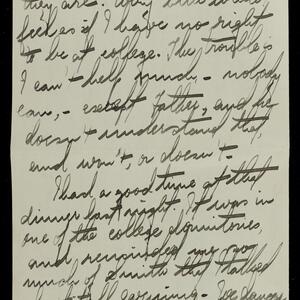 they are.
feel as if I have no right
to be at college. The trouble is
I can't help much - nobody
can, - except father, and he
doesn't understand that,
and won't, or doesn't.
I had a good time at that
dinner last night. It was in
one of the college dormitories,
and reminded me so
much of Smith that I talked
it all evening - We danced